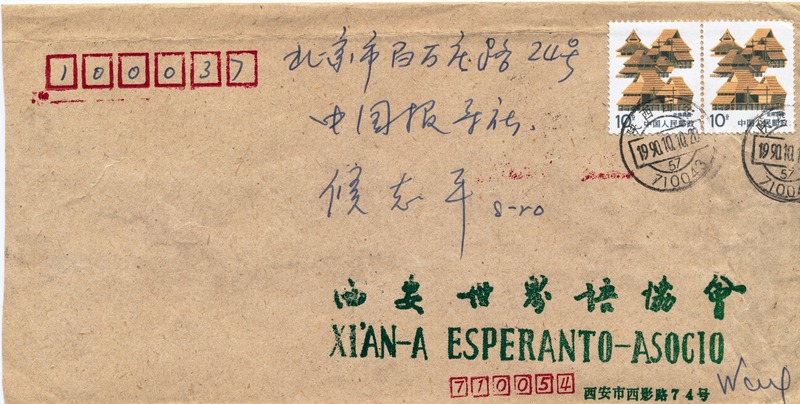 100037
北京市百万庄路24号
中国报导社.
侯志平 s-ro
10分
中国人民邮政
10分
中国人民邮政
陕西
1990.10.10.20
57
710043
1990.10.1
57
71004
西安世界語協會
XI'AN-A ESPERANTO-ASOCIO
710054
西安市西影路74号
Wang